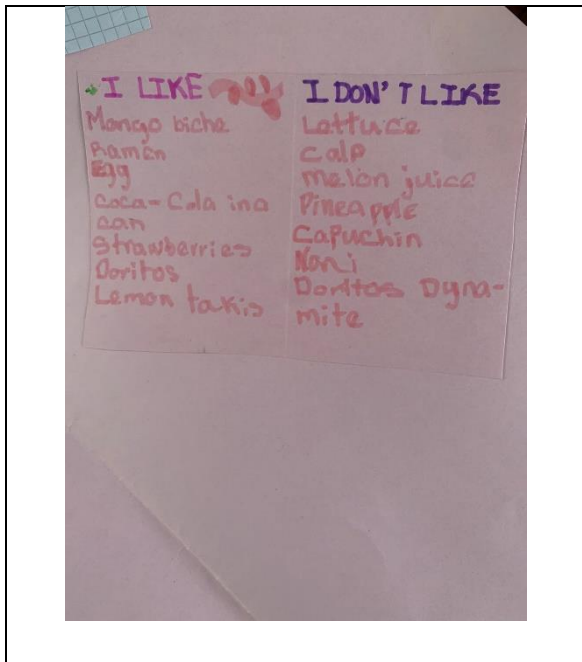 I LIKE
Mango biche
Ramen
Egg
Coca-Cola in a
can
Strawberries
Doritos
Lemon takis
I DON'T LIKE
Lettuce
Calp
melon juice
Pineapple
Capuchin
Noni
Doritos Dyna-
mite